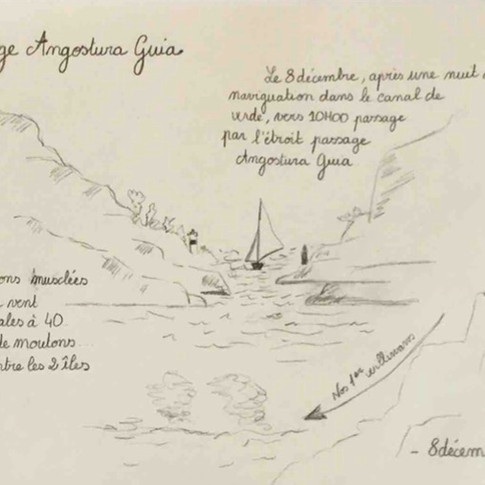 ge Angostura Guia
Le 8 décembre, après une nuit
naviguation dans le canal de
verde, vers 10H00 passage
par l'étroit passage
Angostura Guia
ons musclées
vent
ales à 40
de moutons
tre les 2 îles
Nos 1er
- 8décem